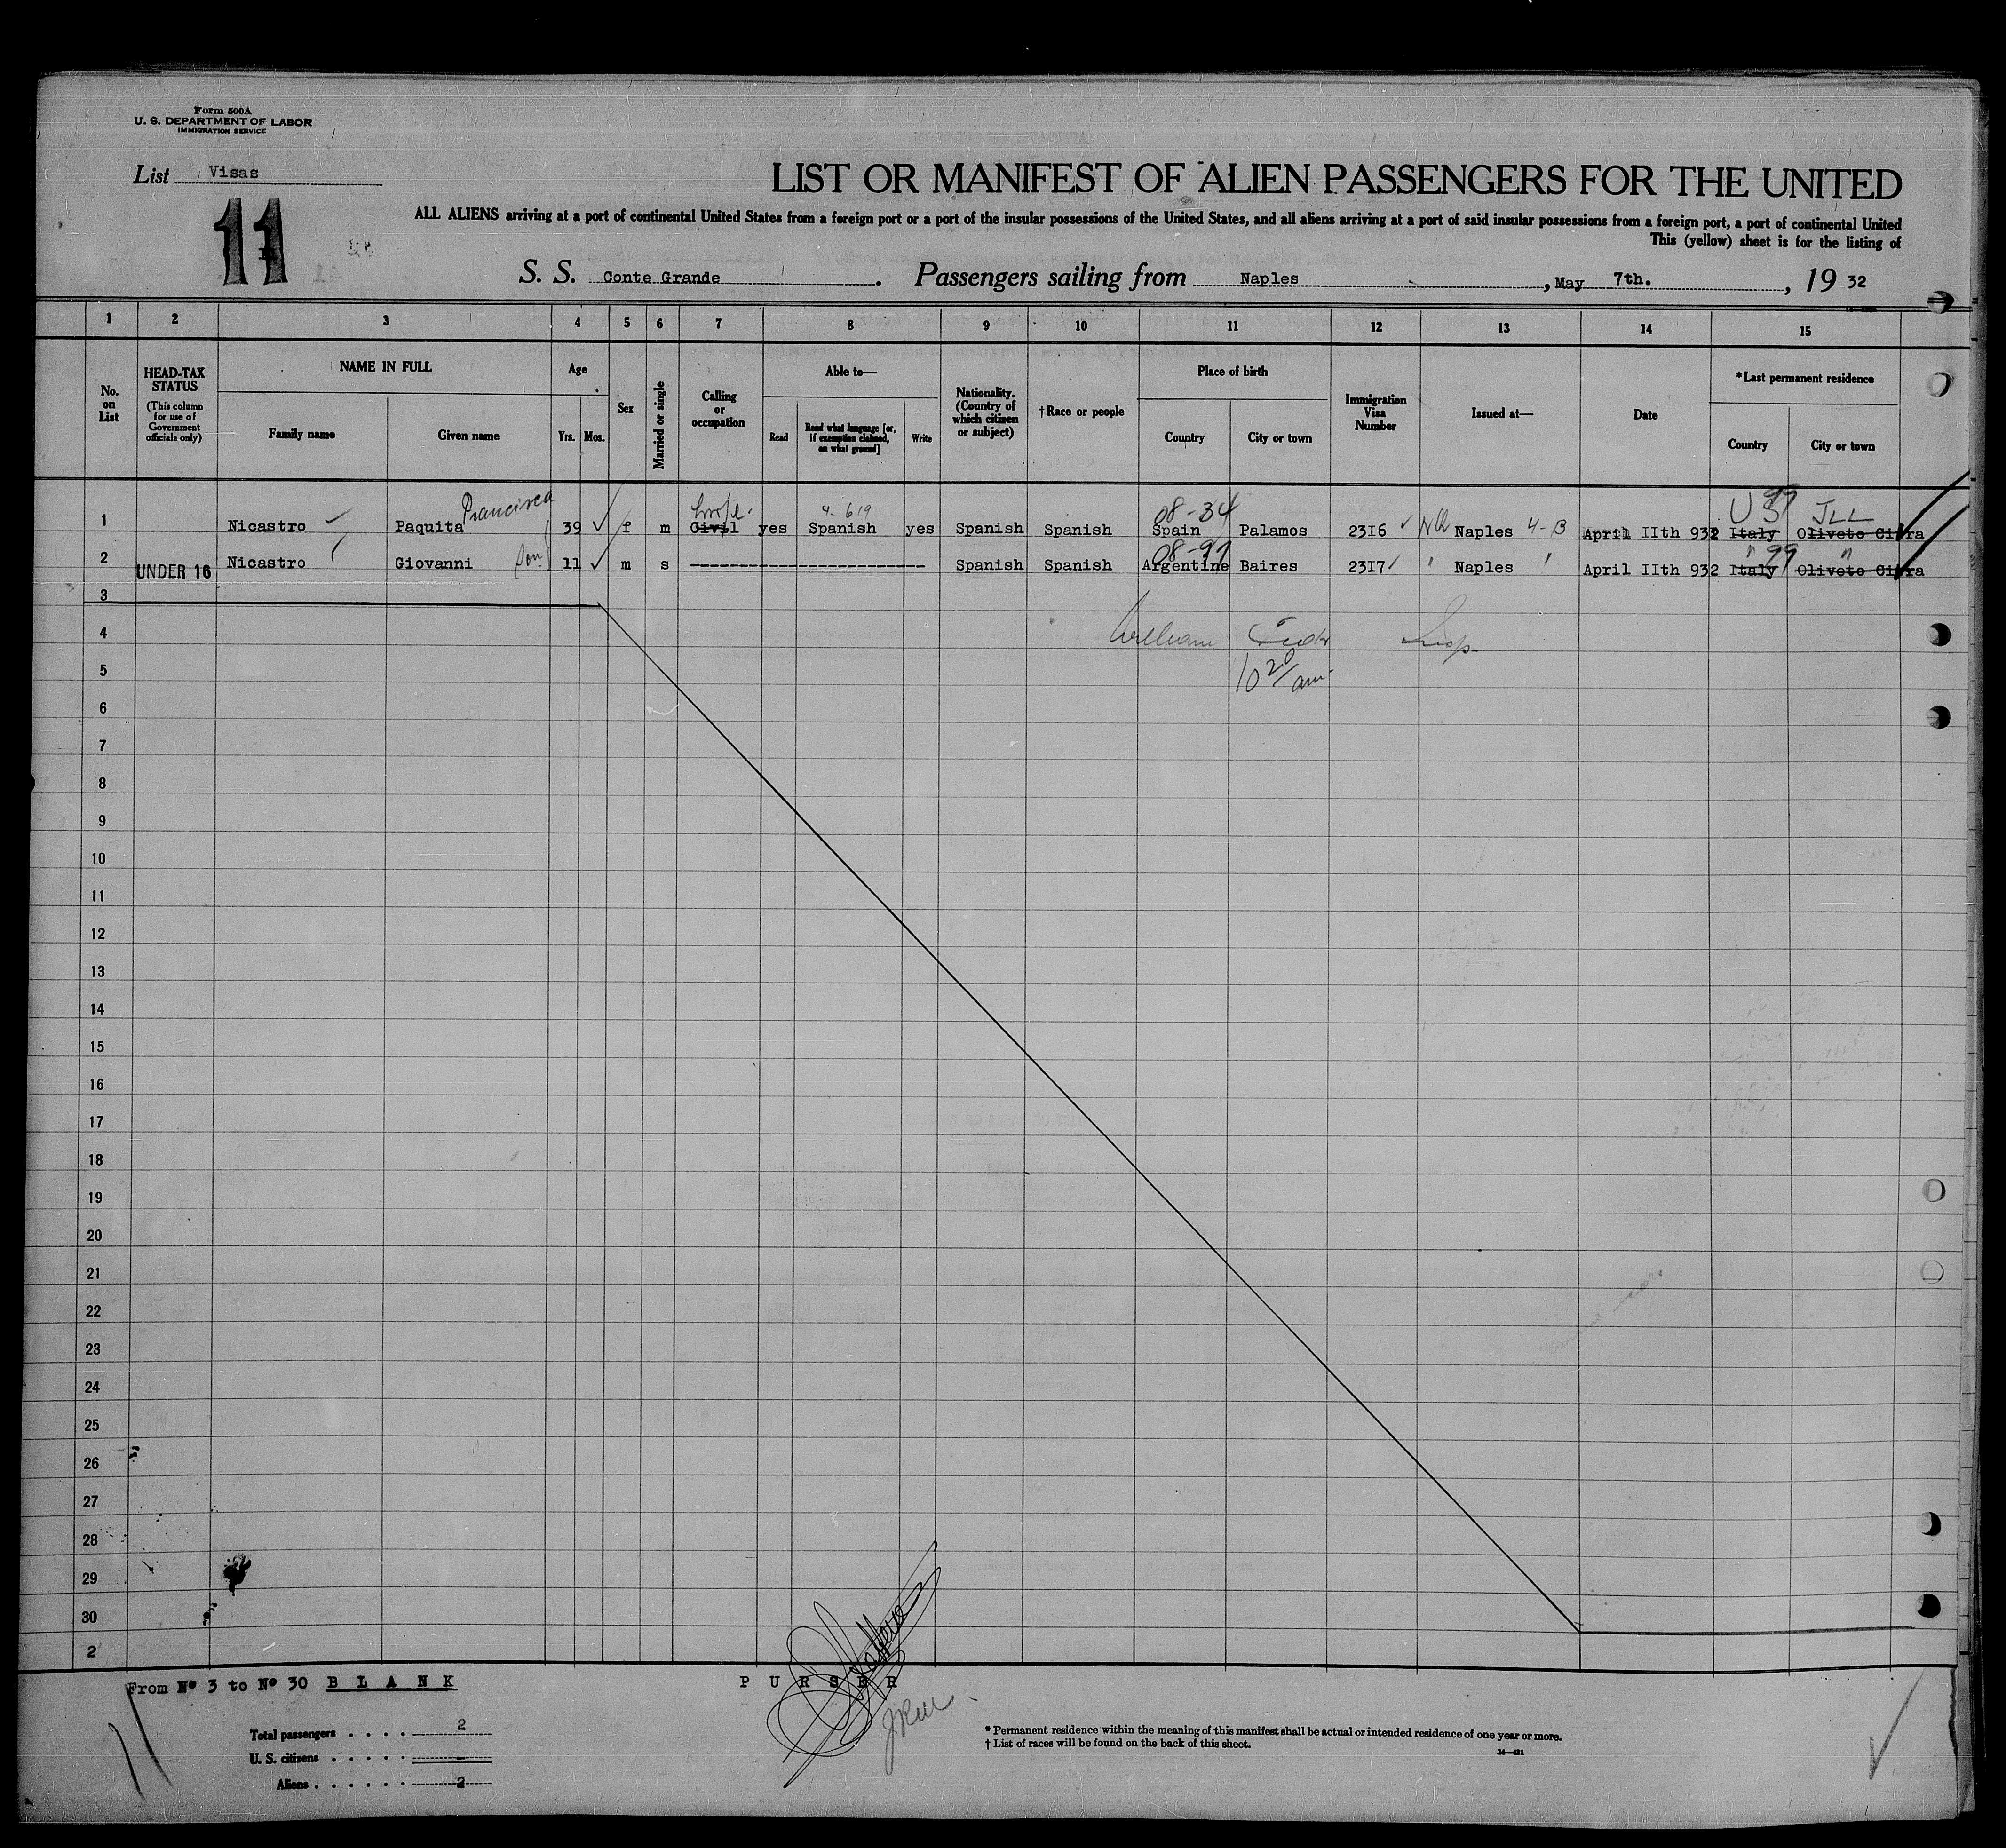 Form 500A
U. S. DEPARTMENT OF LABOR
IMMIGRATION SERVICE
List Visas
11
LIST OR MANIFEST OF ALIEN PASSENGERS FOR THE UNITED
ALL ALIENS arriving at a port of continental United States from a foreign port or a port of the insular possessions of the United States, and all aliens arriving at a port of said insular possessions from a foreign port, a port of continental United
This (yellow) sheet is for the listing of
S. S. Conte Grande . Passengers sailing from Naples , May 7th. , 19 32
1 2 3 4 5 6 7 8 9 10 11 12 13 14 15
No. on List
HEAD-TAX STATUS
(This column for use of Government officials only)
NAME IN FULL
Family name
Given name
Age
Yrs. Mos.
Sex
Married or single
Calling or occupation
Able to—
Read
Read what language [or, if exemption claimed, on what ground]
Write
Nationality. (Country of which citizen or subject)
† Race or people
Place of birth
Country
City or town
Immigration Visa Number
Issued at—
Date
*Last permanent residence
Country
City or town
Francisca 4-619 08-34 US 99 ILL
1 Nicastro Paquita 39 f m Civil yes Spanish yes Spanish Spanish Spain Palamos 2316 NQ Naples 4-B April IIth 932 Italy Oliveto Citra
08-97 " 99 "
2 UNDER 16 Nicastro Giovanni son 11 m s Spanish Spanish Argentine Baires 2317 " Naples " April IIth 932 Italy Oliveto Citra
3
4 William Insp.
5 10 20/am.
6
7
8
9
10
11
12
13
14
15
16
17
18
19
20
21
22
23
24
25
26
27
28
29
30
2
From Nº 3 to Nº 30 B L A N K
P U R S E R
Total passengers . . . . 2
U. S. citizens . . . . . -
Aliens . . . . . . 2
* Permanent residence within the meaning of this manifest shall be actual or intended residence of one year or more.
† List of races will be found on the back of this sheet.
14—421